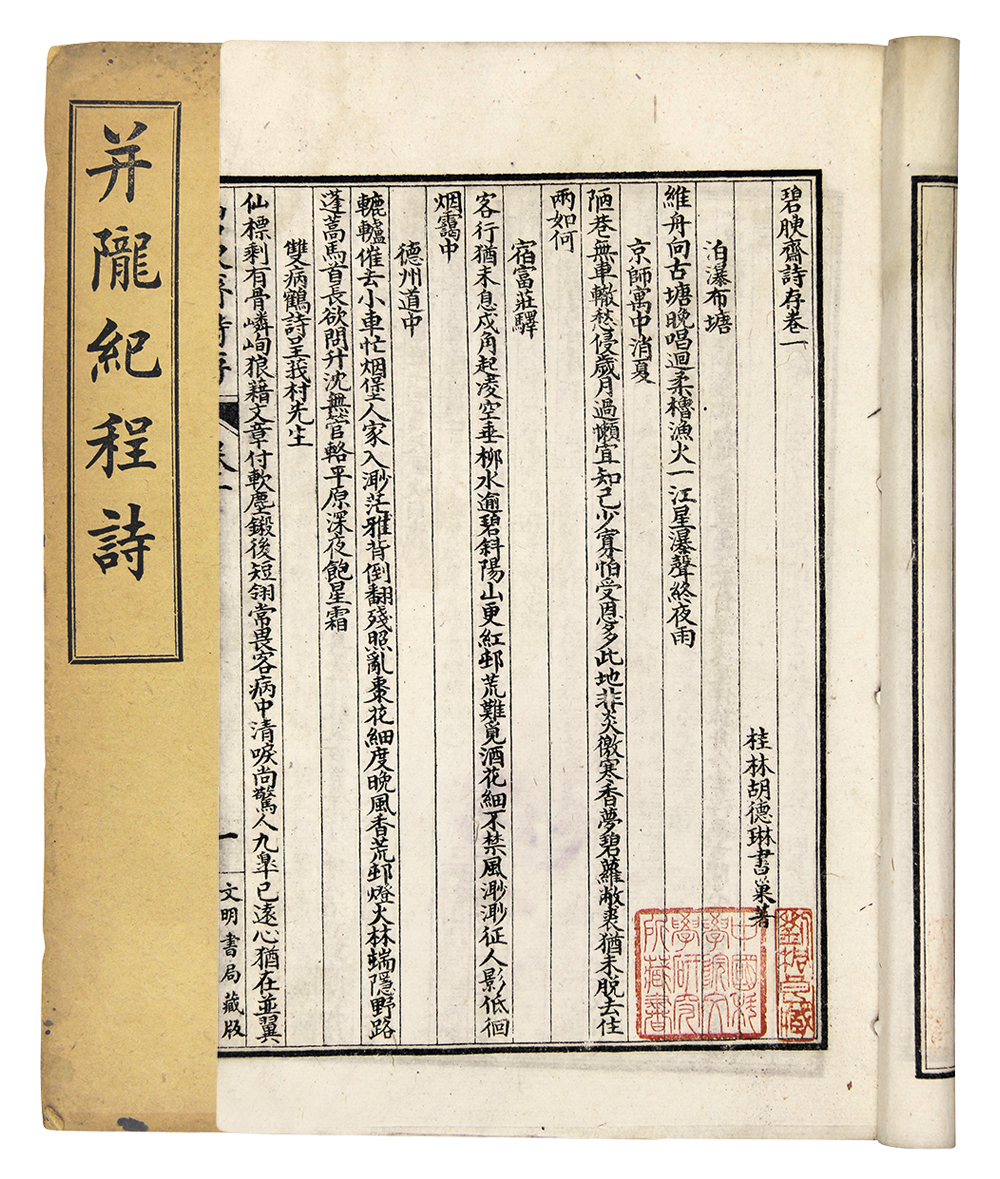 并隴紀程詩
碧腴齋詩存卷一
桂林胡德琳書巢著
泊瀑布塘
維舟向古塘晚唱迴柔櫓漁火一江星瀑聲終夜雨
京師寓中消夏
陋巷無車轍愁侵歲月過懶宜知己少窮怕受恩多此地非炎徼寒香夢碧蘿敝裘猶未脫去住
兩如何
宿富莊驛
客行猶未息戍角起凌空垂柳水逾碧斜陽山更紅邨荒難覓酒花細不禁風渺渺征人影低徊
烟靄中
德州道中
轆轤催去小車忙烟堡人家入渺茫雅背倒翻殘照亂棗花細度晚風香荒邨燈火林端隱野路
蓬蒿馬首長欲問升沈無管輅平原深夜飽星霜
雙病鶴詩呈莪村先生
仙標剩有骨嶙峋狼藉文章付軟塵鎩後短翎常畏客病中清唳尚驚人九臯已遠心猶在並翼
一
文明書局藏版
中國科
學院文
學研究
所藏書